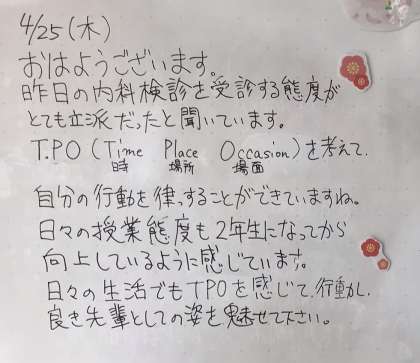 4/25(木)
おはようございます。
昨日の内科検診を受診する態度が
とても立派だったと聞いています。
T.P.O (Time Place Occasion)を考えて、
時 場所 場面
自分の行動を律っすることができていますね。
日々の授業態度も2年生になってから
向上しているように感じています。
日々の生活でもTPOを感じて、行動し、
良き先輩としての姿を魅せて下さい。